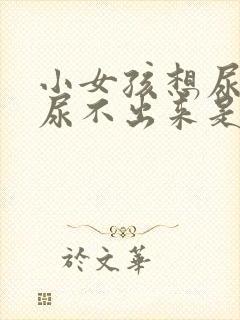 小女孩想尿
尿不出来是
於文华